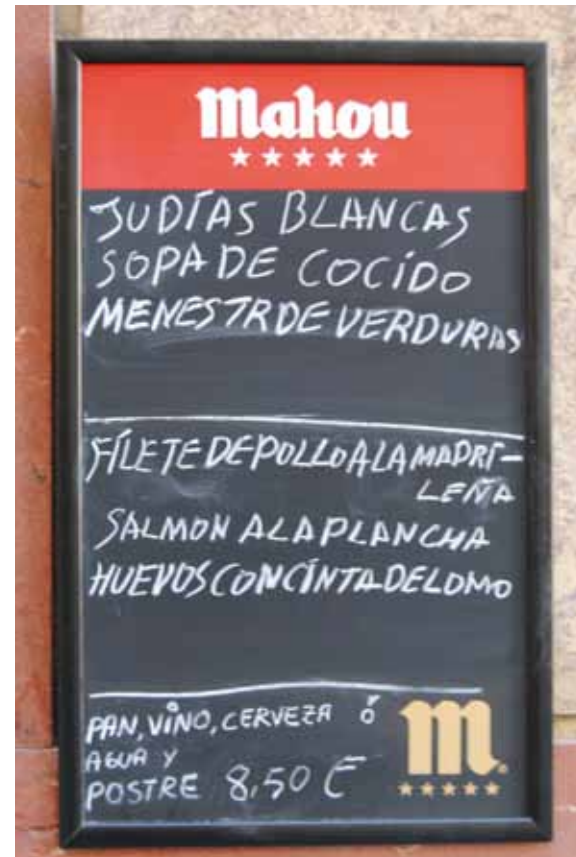 Mahou
JUDÍAS BLANCAS
SOPA DE COCIDO
MENESTR DE VERDURAS
FÍLETE DE POLLO A LA MADRI-
LEÑA
SALMON A LA PLANCHA
HUEVOS CON CÍNTA DE LOMO
PAN, VINO, CERVEZA ó
AGUA Y
POSTRE 8,50 €
m